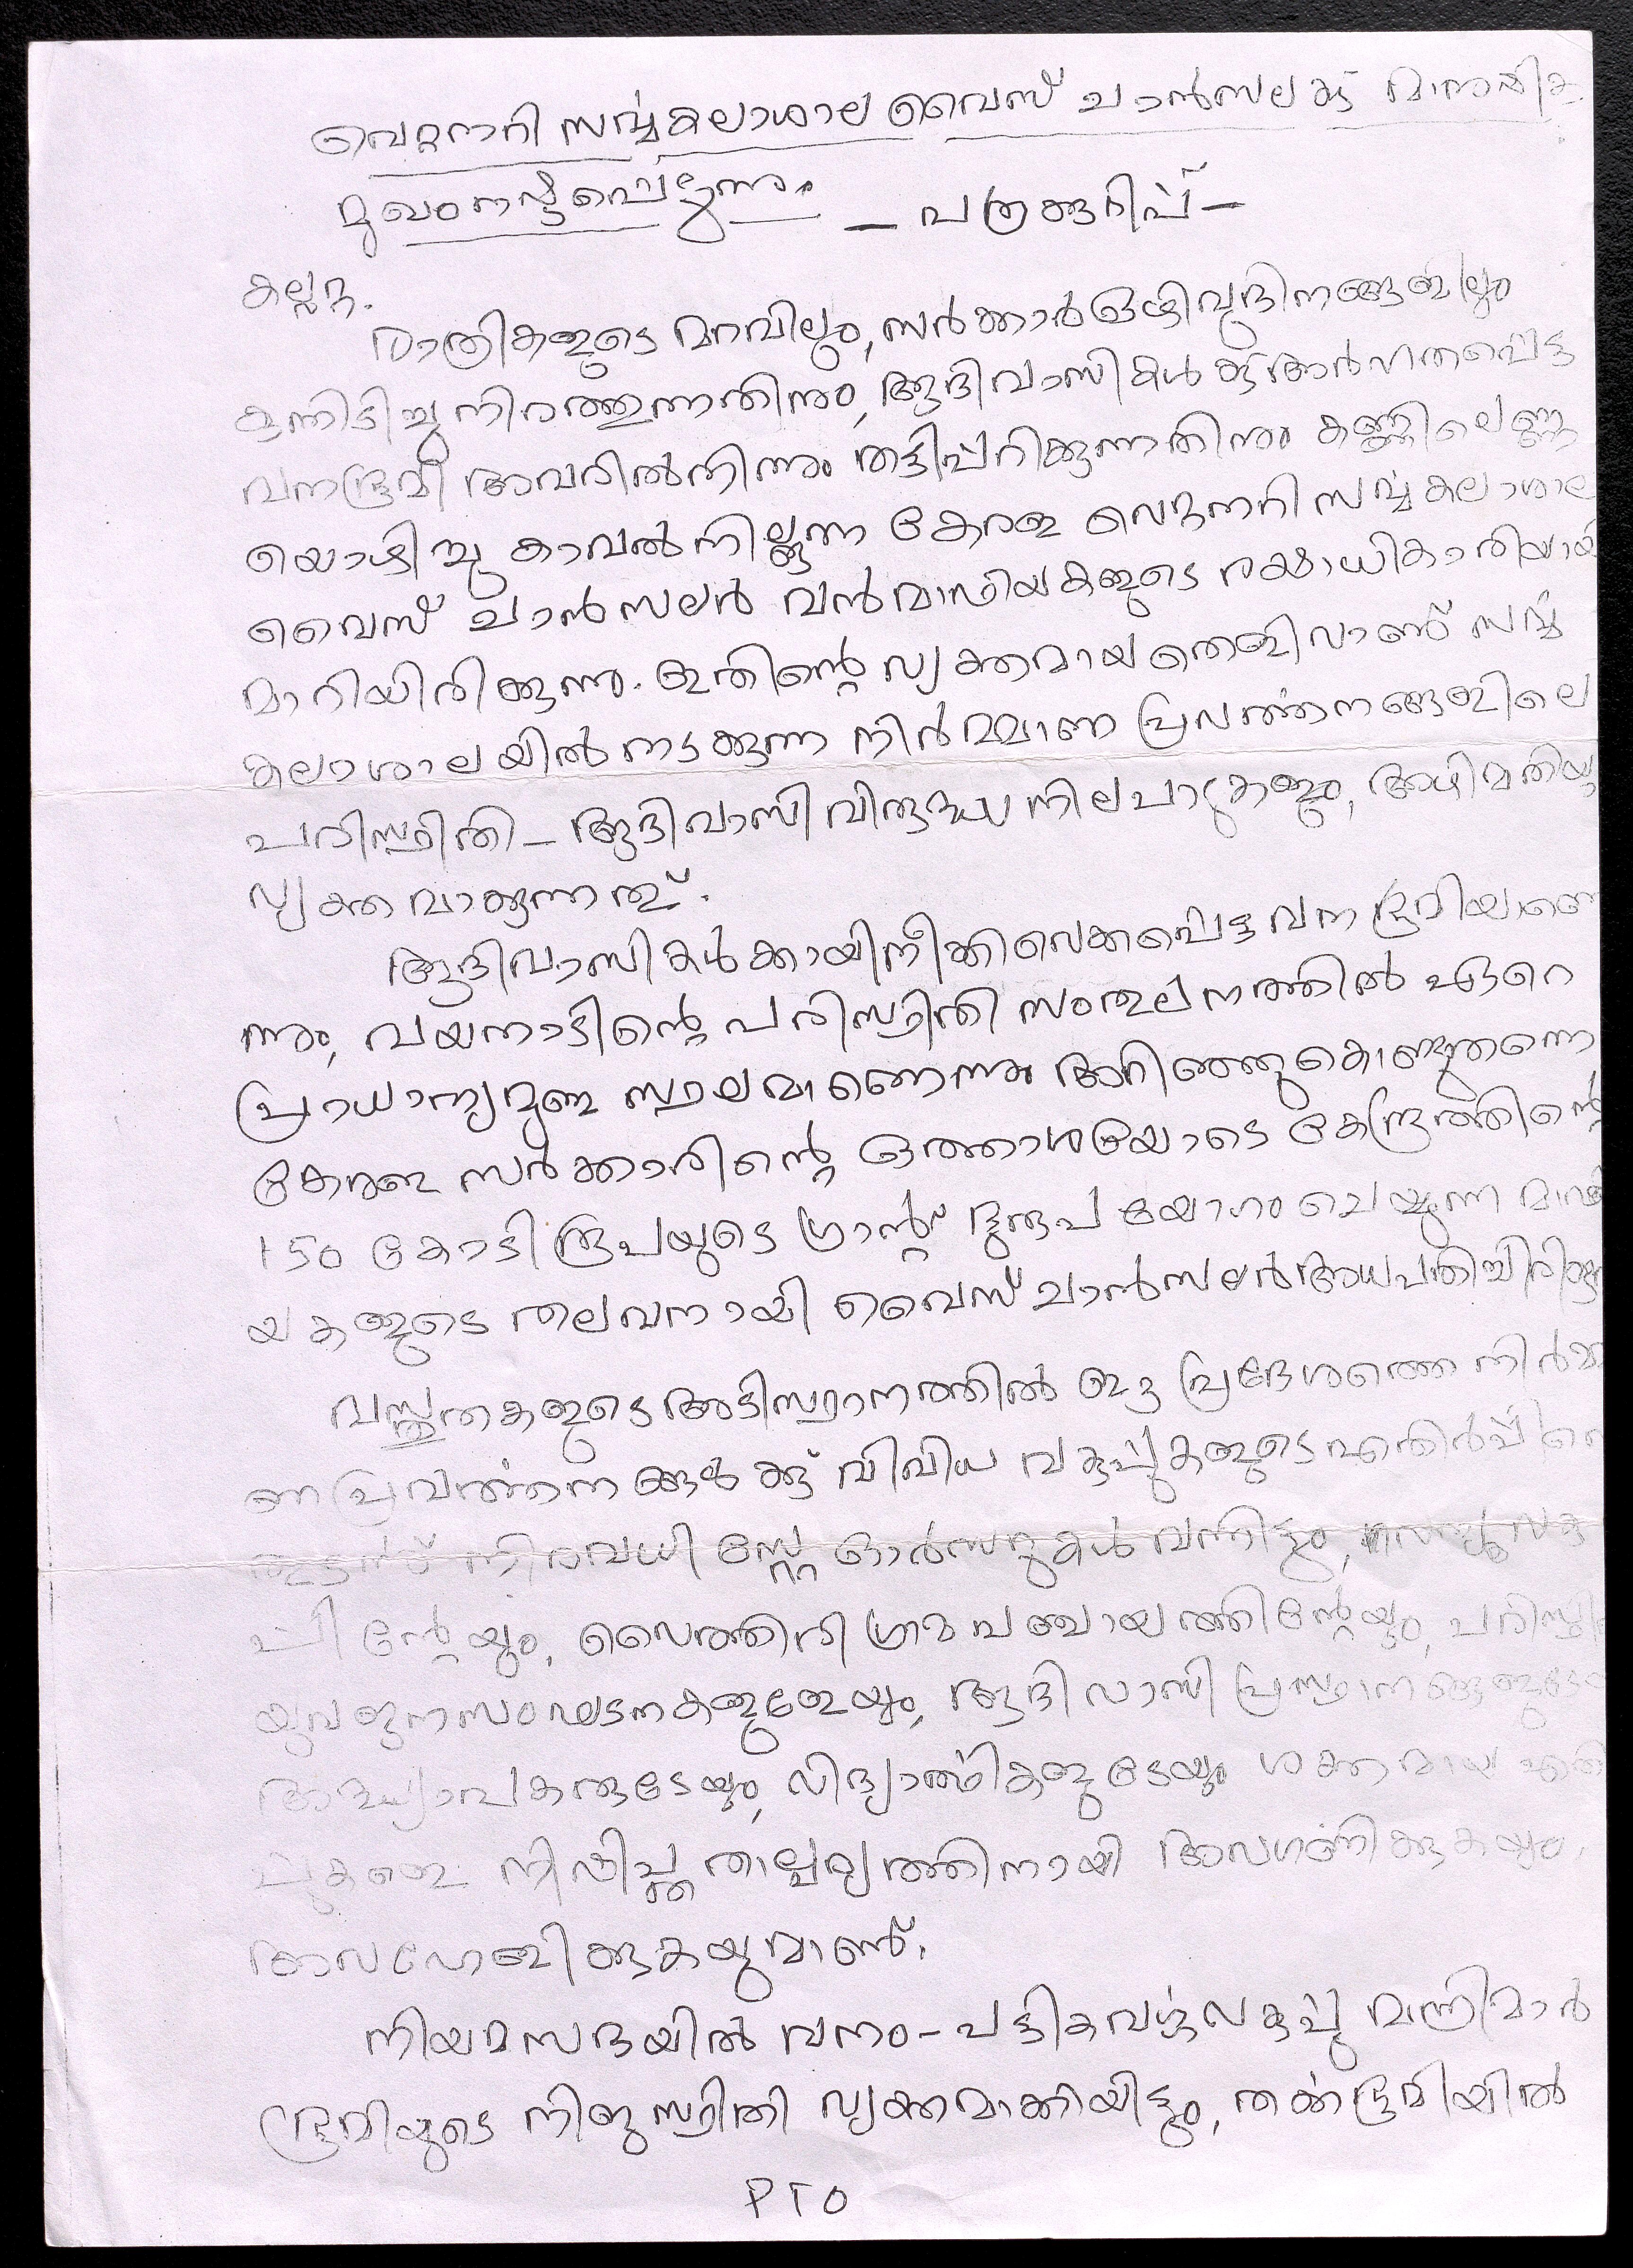 വെറ്റനറി സർവ്വകലാശാല വൈസ് ചാൻസലർക്ക്
മുഖം നഷ്ടപ്പെടുന്നു. – പത്രക്കുറിപ്പ് –
കല്പറ്റ.
രാത്രികളുടെ മറവിലും, സർക്കാർ ഒഴിവുദിനങ്ങളിലും
കുന്നിടിച്ചു നിരത്തുന്നതിനും, ആദിവാസികൾക്കർഹതപ്പെട്ട
വനഭൂമി അവരിൽനിന്നും തട്ടിപ്പറിക്കുന്നതിനും കണ്ണിലെണ്ണ
യൊഴിച്ചു കാവൽനില്ക്കുന്ന കേരള വെറ്റനറി സർവ്വകലാശാല
വൈസ് ചാൻസലർ വൻമാഫിയകളുടെ രക്ഷാധികാരിയായി
മാറിയിരിക്കുന്നു. ഇതിന്റെ വ്യക്തമായ തെളിവാണ് സർവ്വ
കലാശാലയിൽ നടക്കുന്ന നിർമ്മാണ പ്രവർത്തനങ്ങളിലെ
പരിസ്ഥിതി – ആദിവാസി വിരുദ്ധ നിലപാടുകളും, അഴിമതിയും
വ്യക്തമാകുന്നത്.
ആദിവാസികൾക്കായി നീക്കിവെക്കപ്പെട്ട വനഭൂമിയാണെ
ന്നും, വയനാടിന്റെ പരിസ്ഥിതി സംതുലനത്തിൽ ഏറെ
പ്രാധാന്യമുള്ള സ്ഥലമാണെന്നും അറിഞ്ഞുകൊണ്ടുതന്നെ
കേരള സർക്കാരിന്റെ ഒത്താശയോടെ കേന്ദ്രത്തിന്റെ
150 കോടി രൂപയുടെ ഗ്രാന്റ് ദുരുപയോഗം ചെയ്യുന്ന മാഫി
യകളുടെ തലവനായി വൈസ് ചാൻസലർ അധപതിച്ചിരിക്കുന്നു
വസ്തുതകളുടെ അടിസ്ഥാനത്തിൽ ഈ പ്രദേശത്തെ നിർമ്മാ
ണപ്രവർത്തനങ്ങൾക്ക് വിവിധ വകുപ്പുകളുടെ എതിർപ്പിനെ
തുടർന്ന് നിരവധി സ്റ്റേ ഓർഡറുകൾ വന്നിട്ടും,
പ്പിന്റേയും, വൈത്തിരി ഗ്രാമപഞ്ചായത്തിന്റേയും, പരിസ്ഥിതി
യുവജനസംഘടനകളുടേയും, ആദിവാസി പ്രസ്ഥാനങ്ങളുടേയും
അദ്ധ്യാപകരുടേയും, വിദ്യാർത്ഥികളുടേയും ശക്തമായ എതിർ
പ്പുകളെ നിക്ഷിപ്ത താല്പര്യത്തിനായി അവഗണിക്കുകയും,
അവഹേളിക്കുകയുമാണ്.
നിയമസഭയിൽ വനം – പട്ടികവർഗ്ഗവകുപ്പു മന്ത്രിമാർ
ഭൂമിയുടെ നിജസ്ഥിതി വ്യക്തമാക്കിയിട്ടും, തർക്കഭൂമിയിൽ
PTO